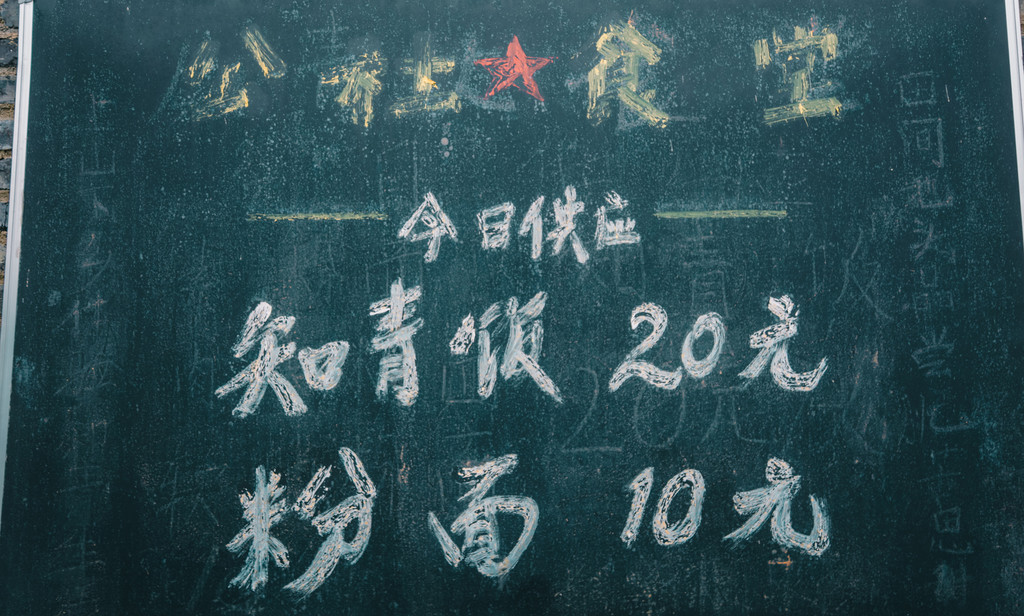 公社★食堂
今日供应
知青饭 20元
粉面 10元